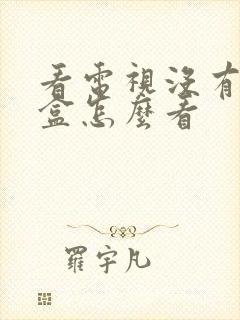 看電視沒有
盒怎麼看
羅宇凡